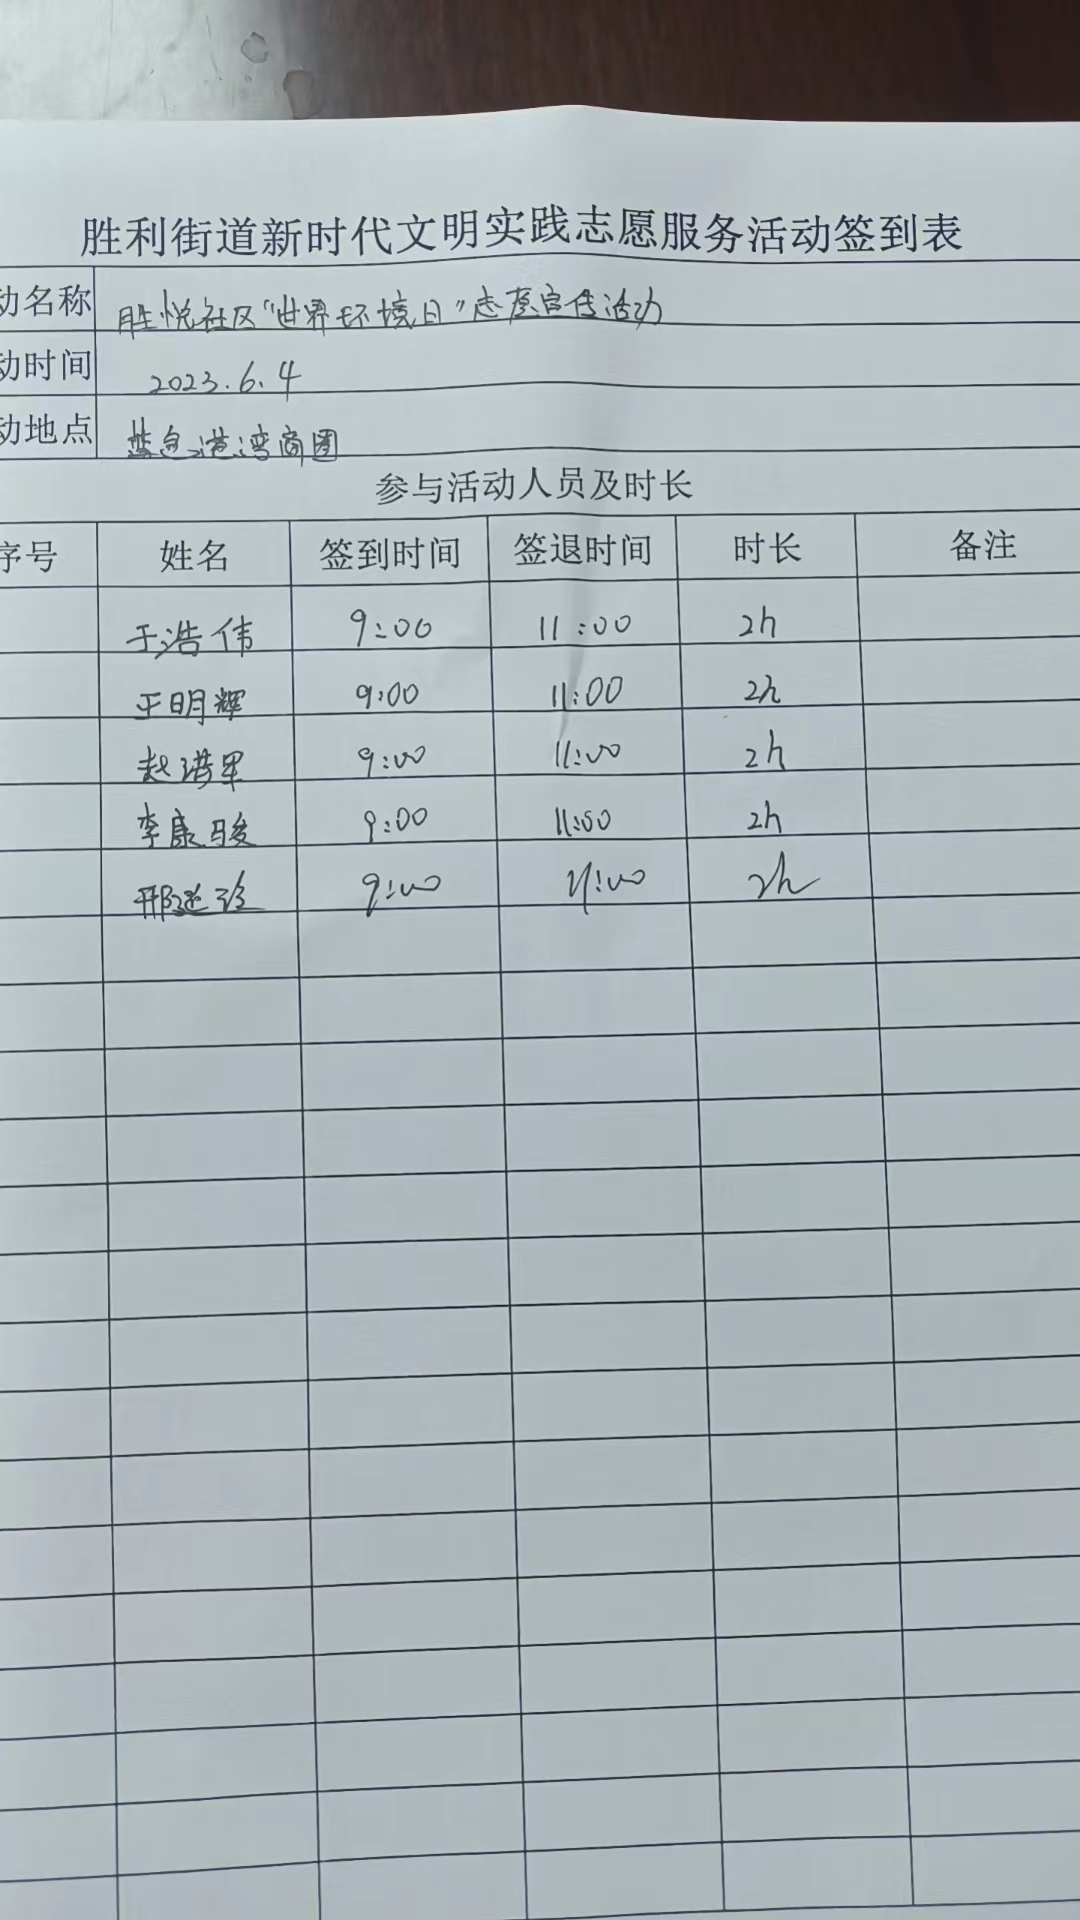 胜利街道新时代文明实践志愿服务活动签到表
动名称 胜悦社区“世界环境日”志愿宣传活动
动时间 2023.6.4
动地点 蓝色港湾商圈
参与活动人员及时长
序号 姓名 签到时间 签退时间 时长 备注
于浩伟 9:00 11:00 2h
王明辉 9:00 11:00 2h
赵洪军 9:00 11:00 2h
李康骏 9:00 11:00 2h
邢延 9:00 11:00 2h